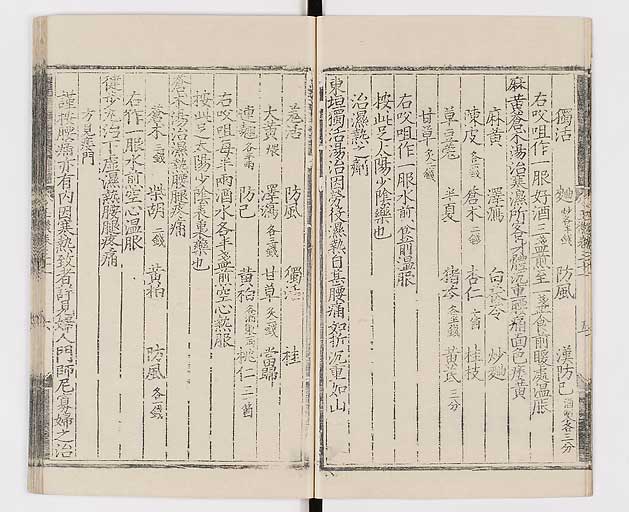 獨活 麵炒半錢 防風 漢防己酒製各三分
右㕮咀作一服好酒三盞煎至一盞食前暖處溫服
麻黃蒼朮湯治寒濕所客身體沉重腰痛面色痿黃
麻黃 澤瀉 白茯苓 炒麵
陳皮各三錢 蒼朮二錢 杏仁 桂枝
草豆蔻 半夏 猪苓各五錢 黃芪三分
甘草炙二錢
右㕮咀作一服水煎食前溫服
按此足太陽少陰藥也
治濕熱之劑
東垣獨活湯治因勞役濕熱自甚腰痛如折沉重如山
羗活 防風 獨活 桂
大黃煨 澤瀉各三錢 甘草炙二錢 當歸
連翹各半兩 防己 黃栢 桃仁
右㕮咀每半兩酒水各半盞煎空心熱服
按此足太陽少陰表裏藥也
蒼朮湯治濕熱腰腿疼痛
蒼朮三錢 柴胡二錢 黃栢 防風各一錢
右作一服水煎空心溫服
健步丸治下虛濕熱腰腿疼痛
方見痿門
謹按腰痛亦有內因寒熱致者詳見婦人門師尼寡婦之治